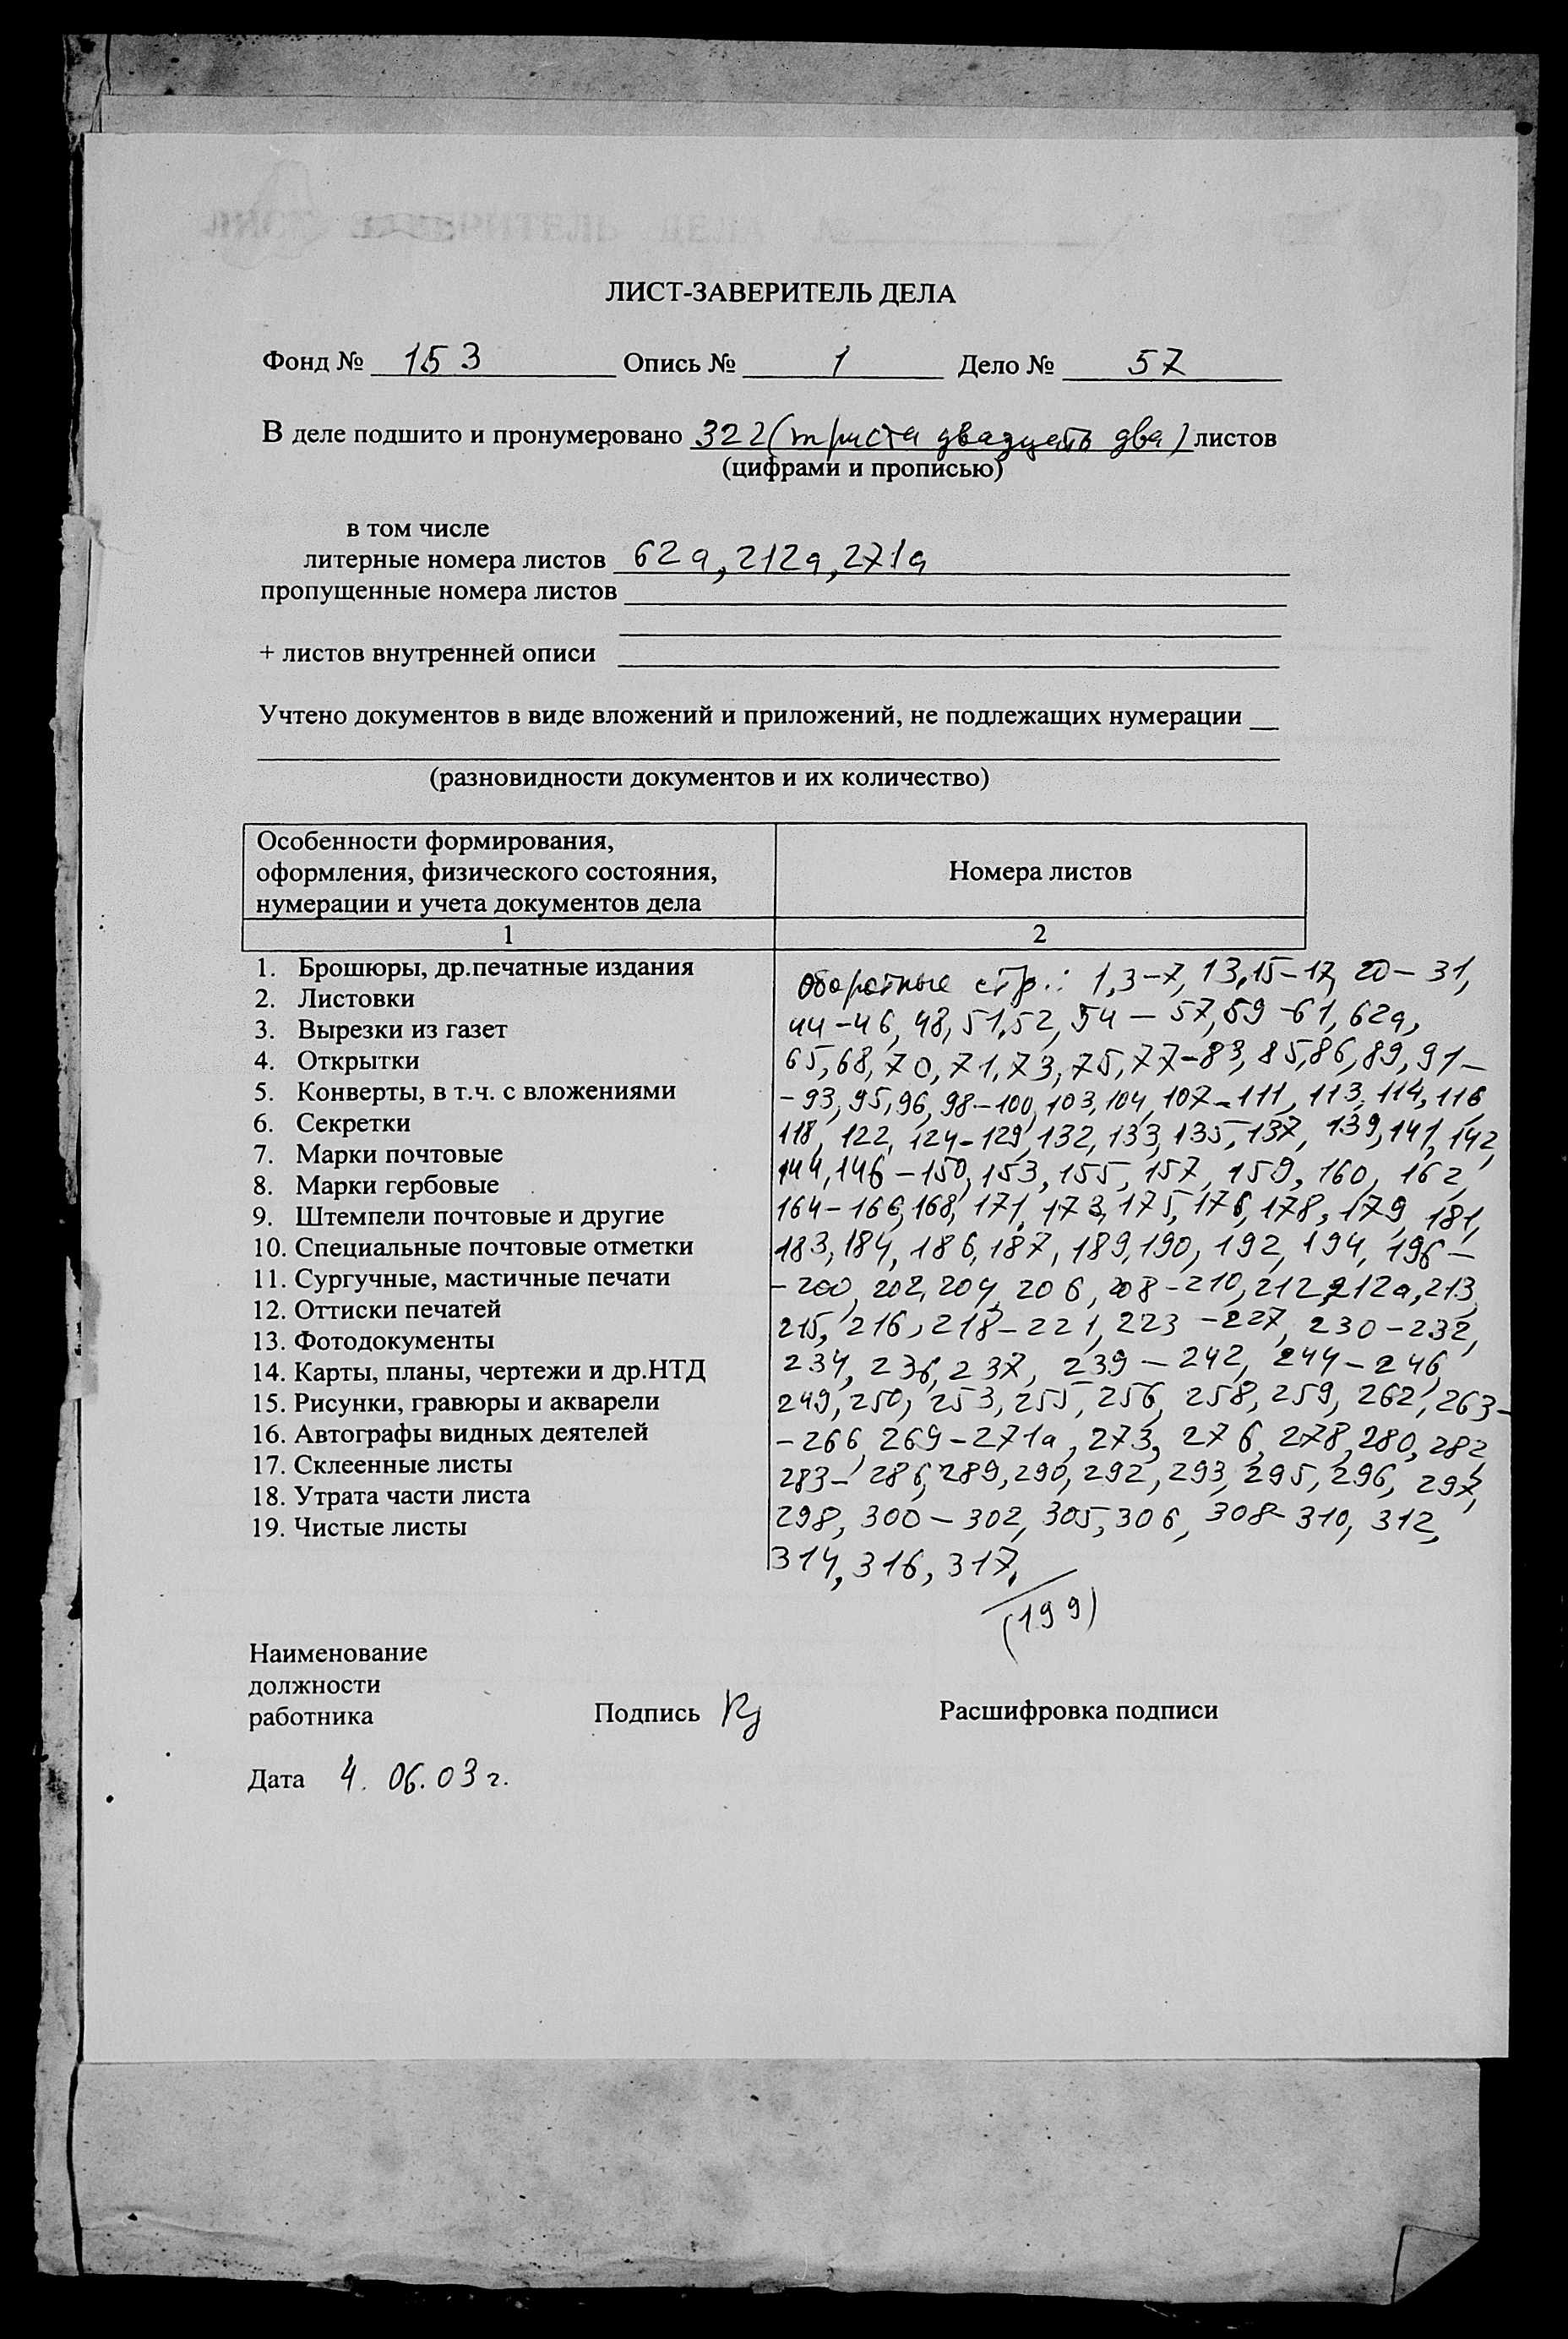 ЛИСТ-ЗАВЕРИТЕЛЬ ДЕЛА
Фонд № 153 Опись № 1 Дело № 57
В деле подшито и пронумеровано 322 (триста двадцать два) листов
(цифрами и прописью)
в том числе
литерные номера листов 62а, 212а, 271а
пропущенные номера листов
+ листов внутренней описи
Учтено документов в виде вложений и приложений, не подлежащих нумерации
(разновидности документов и их количество)
Особенности формирования,
оформления, физического состояния,
нумерации и учета документов дела
Номера листов
1 2
1. Брошюры, др.печатные издания
2. Листовки
3. Вырезки из газет
4. Открытки
5. Конверты, в т.ч. с вложениями
6. Секретки
7. Марки почтовые
8. Марки гербовые
9. Штемпели почтовые и другие
10. Специальные почтовые отметки
11. Сургучные, мастичные печати
12. Оттиски печатей
13. Фотодокументы
14. Карты, планы, чертежи и др.НТД
15. Рисунки, гравюры и акварели
16. Автографы видных деятелей
17. Склеенные листы
18. Утрата части листа
19. Чистые листы
Оборотные стр.: 1,3-7, 13,15-17, 20-31,
44-46, 48, 51,52, 54-57, 59-61, 62а,
65, 68, 70, 71, 73, 75, 77-83, 85, 86, 89, 91-
-93, 95, 96, 98-100, 103, 104, 107-111, 113, 114, 116,
118, 122, 124-129, 132, 133, 135, 137, 139, 141, 142,
144, 146-150, 153, 155, 157, 159, 160, 162,
164-166, 168, 171, 173, 175, 176, 178, 179, 181,
183, 184, 186, 187, 189, 190, 192, 194, 196-
-200, 202, 204, 206, 208-210, 212, 212а, 213,
215, 216, 218-221, 223-227, 230-232,
234, 236, 237, 239-242, 244-246,
249, 250, 253, 255, 256, 258, 259, 262, 263-
-266, 269-271а, 273, 276, 278, 280, 282,
283-286, 289, 290, 292, 293, 295, 296, 297,
298, 300-302, 305, 306, 308-310, 312,
314, 316, 317.
(199)
Наименование
должности
работника Подпись Расшифровка подписи
Дата 4. 06. 03 г.